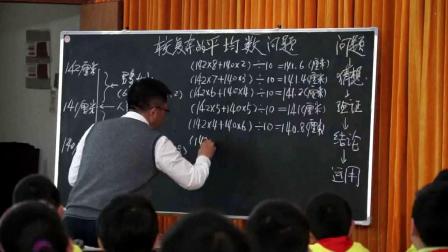 平均数问题
142厘米
141厘米
140
(142×8+140×2)÷10=141.6(厘米)
(142×7+140×3)÷10=141.4(厘米)
(142×6+140×4)÷10=141.2(厘米)
(142×5+140×5)÷10=141(厘米)
(142×4+140×6)÷10=140.8(厘米)
(14
问题
猜想
验证
结论
运用